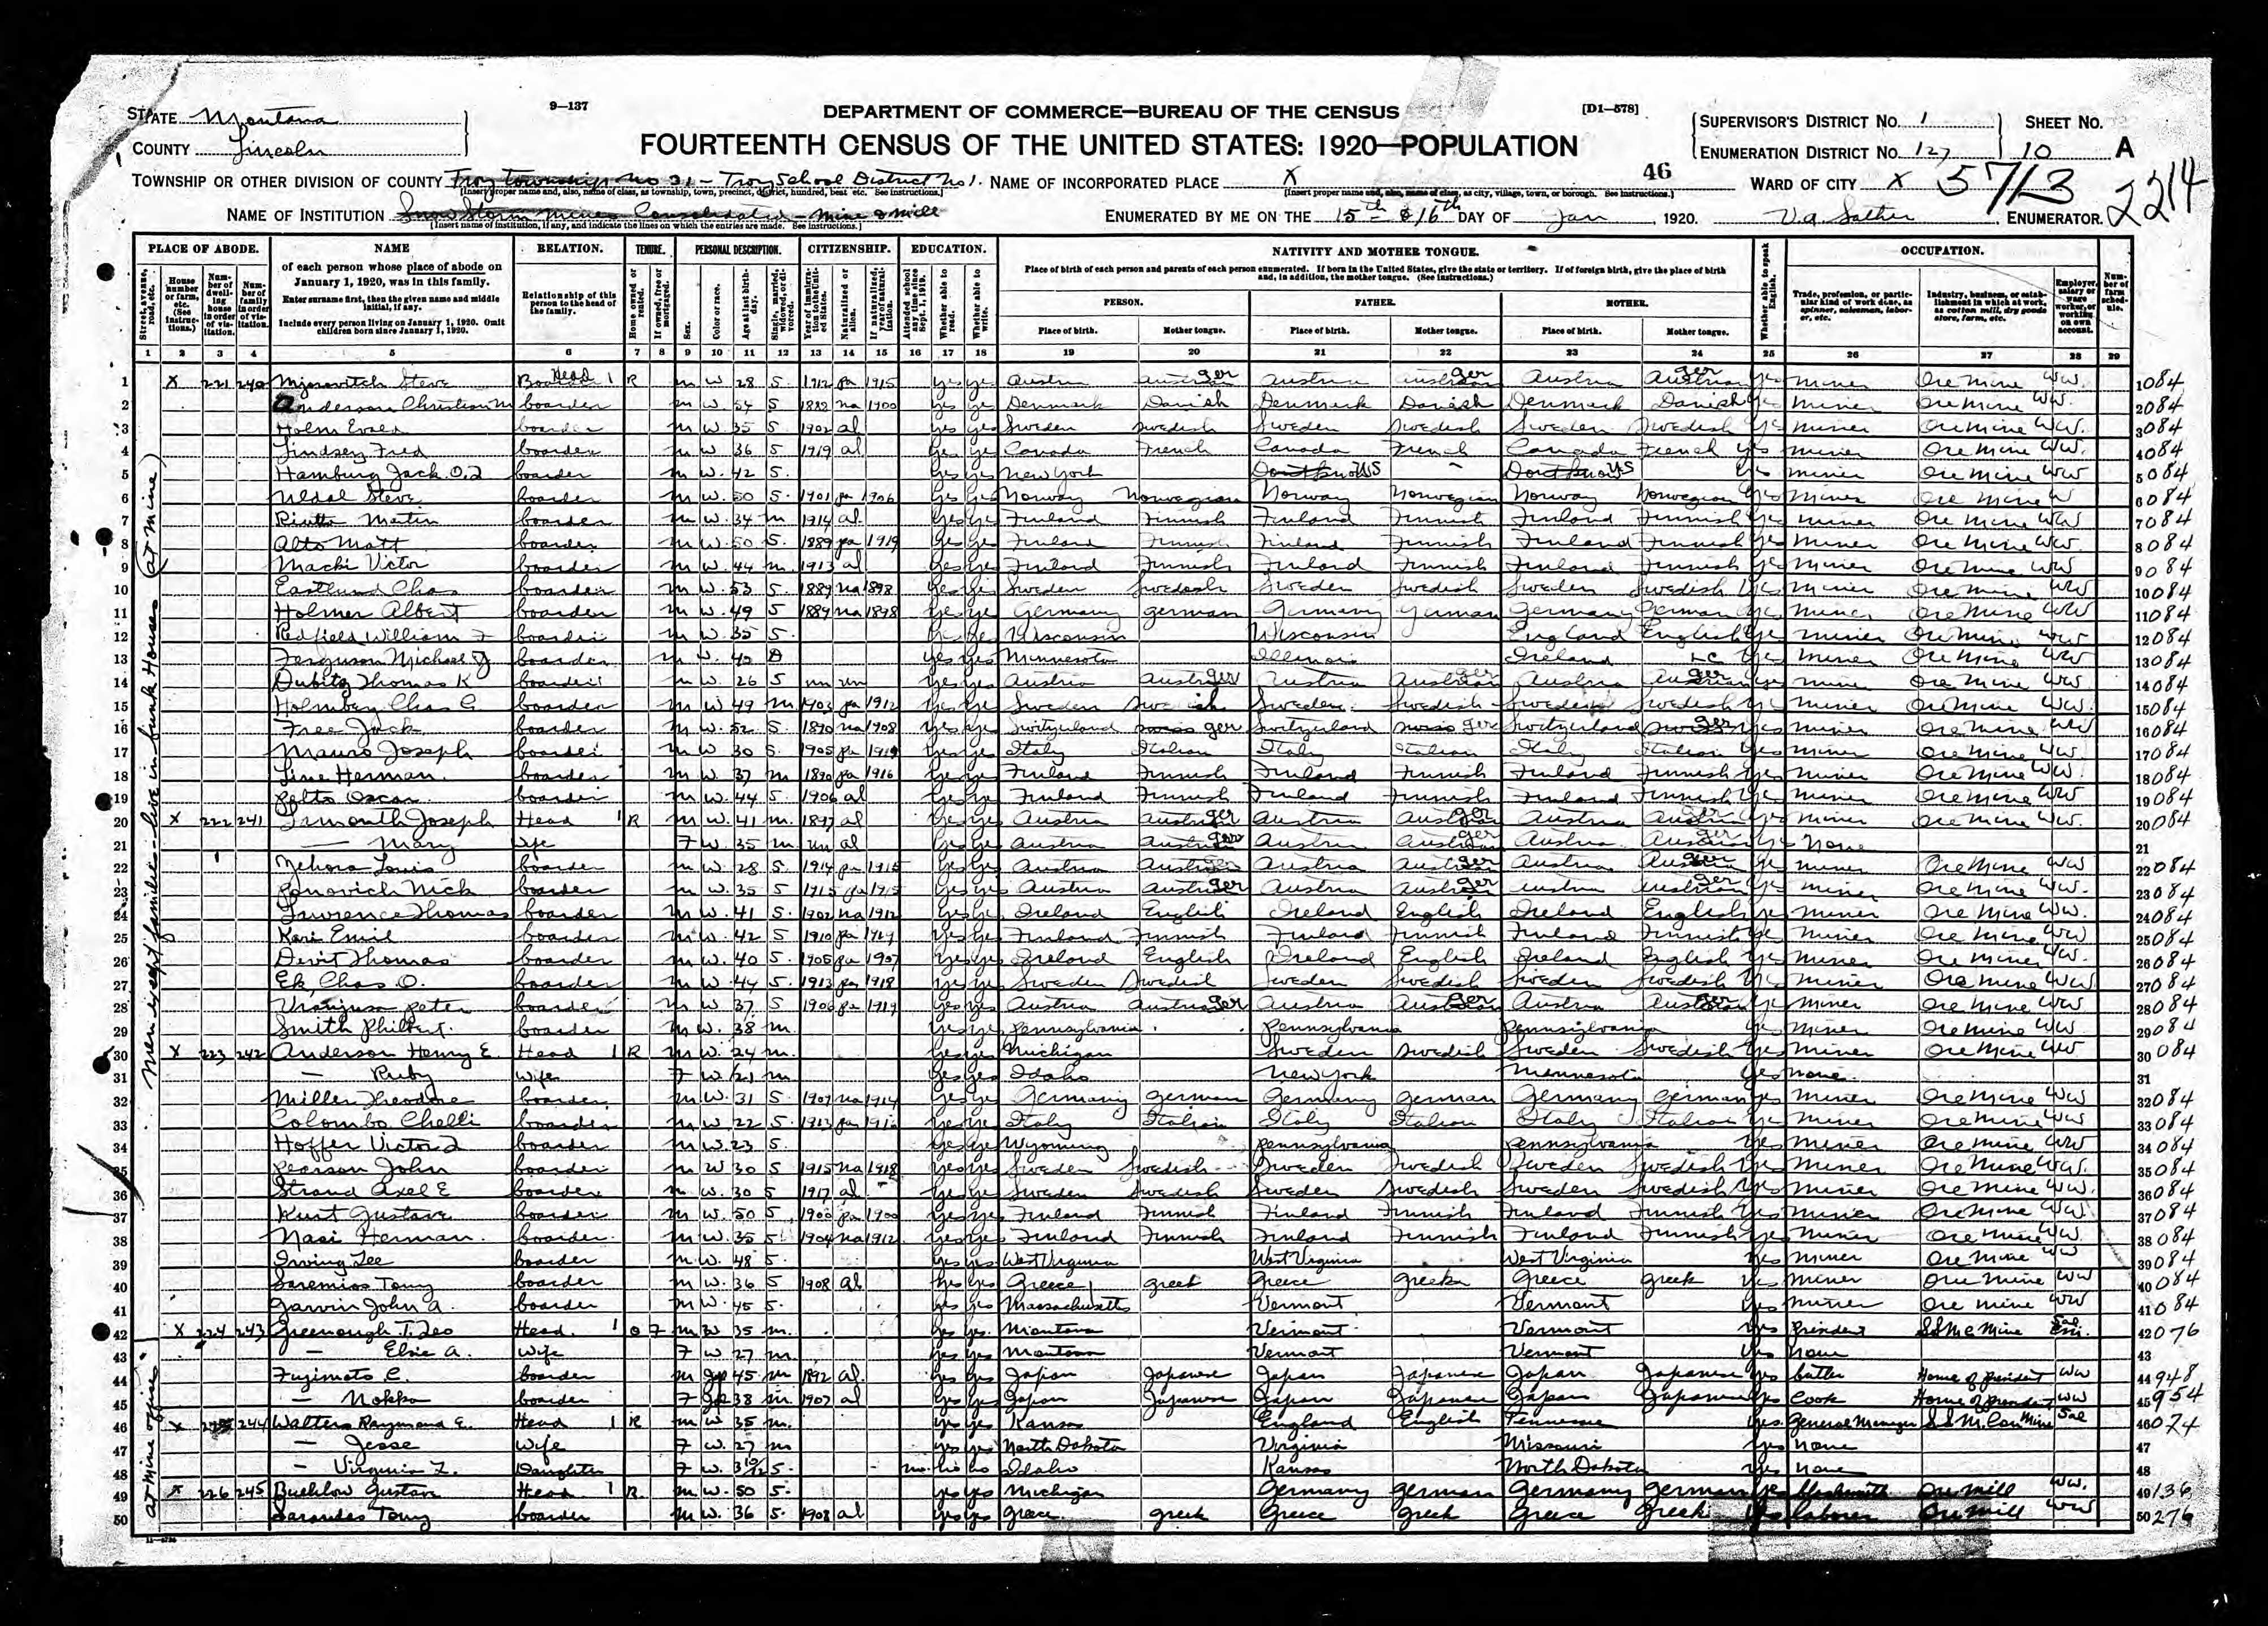 9—137
DEPARTMENT OF COMMERCE—BUREAU OF THE CENSUS
[D1—578]
STATE Montana
COUNTY Lincoln
FOURTEENTH CENSUS OF THE UNITED STATES: 1920—POPULATION
SUPERVISOR'S DISTRICT No. 1
ENUMERATION DISTRICT No. 127
SHEET No. 10 A
TOWNSHIP OR OTHER DIVISION OF COUNTY Troy Township No 31 - Troy School District No 1.
[Insert proper name and, also, name of class, as township, town, precinct, district, hundred, beat etc. See instructions.]
NAME OF INCORPORATED PLACE X
[Insert proper name and, also, name of class, as city, village, town, or borough. See instructions.]
46
WARD OF CITY X
5713
2214
NAME OF INSTITUTION Snow Storm Mines Consolidated - Mine & Mill
[Insert name of institution, if any, and indicate the lines on which the entries are made. See instructions.]
ENUMERATED BY ME ON THE 15th & 16th DAY OF Jan, 1920. V.A. Sather ENUMERATOR.
PLACE OF ABODE. NAME RELATION. TENURE. PERSONAL DESCRIPTION. CITIZENSHIP. EDUCATION. NATIVITY AND MOTHER TONGUE. OCCUPATION.
of each person whose place of abode on January 1, 1920, was in this family.
Enter surname first, then the given name and middle initial, if any.
Include every person living on January 1, 1920. Omit children born since January 1, 1920.
Relationship of this person to the head of the family.
Place of birth of each person and parents of each person enumerated. If born in the United States, give the state or territory. If of foreign birth, give the place of birth and, in addition, the mother tongue. (See instructions.)
PERSON. FATHER. MOTHER.
Place of birth. Mother tongue. Place of birth. Mother tongue. Place of birth. Mother tongue.
Whether able to speak English.
Trade, profession, or particular kind of work done, as spinner, salesman, laborer, etc.
Industry, business, or establishment in which at work, as cotton mill, dry goods store, farm, etc.
Employer, salary or wage worker, or working on own account.
Number of farm schedule.
1 2 3 4 5 6 7 8 9 10 11 12 13 14 15 16 17 18 19 20 21 22 23 24 25 26 27 28 29
Men except families - live in bunk House (at mine)
1 X 221 240 Steve Head 1 R M W 28 S 1912 pa 1915 yes yes Austria ger Austria ger Austria ger yes miner Ore mine WW 1084
2 Anderson Christian M boarder M W 54 S 1882 na 1900 yes yes Denmark Danish Denmark Danish Denmark Danish yes miner Ore mine WW 2084
3 Holm boarder M W 35 S 1902 al yes yes Sweden Swedish Sweden Swedish Sweden Swedish yes miner Ore mine WW 3084
4 Lindsey Fred boarder M W 36 S 1919 al yes yes Canada French Canada French Canada French yes miner Ore mine WW 4084
5 Hamburg Jack O.J. boarder M W 42 S yes yes New York US - US yes miner Ore mine WW 5084
6 Uldal Steve boarder M W 50 S 1901 pa 1906 yes yes Norway Norwegian Norway Norwegian Norway Norwegian yes miner Ore mine W 6084
7 Matin boarder M W 34 M 1914 al yes yes Finland Finnish Finland Finnish Finland Finnish yes miner Ore mine WW 7084
8 Alto Matt boarder M W 50 S 1889 pa 1919 yes yes Finland Finnish Finland Finnish Finland Finnish yes miner Ore mine WW 8084
9 Macki Victor boarder M W 44 M 1913 al yes yes Finland Finnish Finland Finnish Finland Finnish yes miner Ore mine WW 9084
10 Eastlund Chas boarder M W 53 S 1889 na 1898 yes yes Sweden Swedish Sweden Swedish Sweden Swedish yes miner Ore mine WW 10084
11 Holmer Albert boarder M W 49 S 1889 na 1898 yes yes Germany German Germany German Germany German yes miner Ore mine WW 11084
12 Redfield William F boarder M W 35 S yes yes Wisconsin Wisconsin England English yes miner Ore mine WW 12084
13 Ferguson Michael J boarder M W 40 D yes yes Minnesota Illinois Ireland yes miner Ore mine WW 13084
14 Dubitz Thomas K boarder M W 26 S un un yes yes Austria ger Austria ger Austria ger yes miner Ore mine WW 14084
15 Holmberg Chas G. boarder M W 49 M 1903 pa 1912 yes yes Sweden Swedish Sweden Swedish Sweden Swedish yes miner Ore mine WW 15084
16 Free Jack boarder M W 52 S 1890 na 1908 yes yes Switzerland ger Switzerland ger Switzerland ger yes miner Ore mine WW 16084
17 Mauro Joseph boarder M W 30 S 1905 pa 1919 yes yes Italy Italian Italy Italian Italy Italian yes miner Ore mine WW 17084
18 Herman boarder M W 37 M 1890 pa 1916 yes yes Finland Finnish Finland Finnish Finland Finnish yes miner Ore mine WW 18084
19 Pelto Oscar boarder M W 44 S 1906 al yes yes Finland Finnish Finland Finnish Finland Finnish yes miner Ore mine WW 19084
20 X 222 241 Joseph Head 1 R M W 41 M 1897 al yes yes Austria ger Austria ger Austria ger yes miner Ore mine WW 20084
21 — Mary wife F W 35 M un al yes yes Austria ger Austria ger Austria ger yes none 21
22 Louis boarder M W 28 S 1914 pa 1915 yes yes Austria ger Austria ger Austria ger yes miner Ore mine WW 22084
23 Nick boarder M W 35 S 1913 pa 1915 yes yes Austria ger Austria ger Austria ger yes miner Ore mine WW 23084
24 Lawrence Thomas boarder M W 41 S 1902 na 1912 yes yes Ireland English Ireland English Ireland English yes miner Ore mine WW 24084
25 Kari Emil boarder M W 42 S 1910 pa yes yes Finland Finnish Finland Finnish Finland Finnish yes miner Ore mine WW 25084
26 Devit Thomas boarder M W 40 S 1905 pa 1907 yes yes Ireland English Ireland English Ireland English yes miner Ore mine WW 26084
27 Ek, Chas O. boarder M W 44 S 1913 pa 1918 yes yes Sweden Swedish Sweden Swedish Sweden Swedish yes miner Ore mine WW 27084
28 Peter boarder M W 37 S 1906 pa 1919 yes yes Austria ger Austria ger Austria ger yes miner Ore mine WW 28084
29 Smith Philbert boarder M W 38 M yes yes Pennsylvania Pennsylvania Pennsylvania yes miner Ore mine WW 29084
30 X 223 242 Anderson Henry E. Head 1 R M W 24 M yes yes Michigan Sweden Swedish Sweden Swedish yes miner Ore mine WW 30084
31 — Ruby wife F W 21 M yes yes Idaho New York Minnesota yes none 31
32 Miller Theodore boarder M W 31 S 1907 na 1914 yes yes Germany German Germany German Germany German yes miner Ore mine WW 32084
33 Colombo Chelli boarder M W 22 S 1913 pa yes yes Italy Italian Italy Italian Italy Italian yes miner Ore mine WW 33084
34 Hoffer Victor J boarder M W 23 S yes yes Wyoming Pennsylvania Pennsylvania yes miner Ore mine WW 34084
35 Pearson John boarder M W 30 S 1915 na 1918 yes yes Sweden Swedish Sweden Swedish Sweden Swedish yes miner Ore mine WW 35084
36 Strand Axel E boarder M W 30 S 1917 al yes yes Sweden Swedish Sweden Swedish Sweden Swedish yes miner Ore mine WW 36084
37 Kurt Gustave boarder M W 50 S 1900 pa 1900 yes yes Finland Finnish Finland Finnish Finland Finnish yes miner Ore mine WW 37084
38 Nasi Herman boarder M W 35 S 1904 na 1912 yes yes Finland Finnish Finland Finnish Finland Finnish yes miner Ore mine WW 38084
39 Irving Lee boarder M W 48 S yes yes West Virginia West Virginia West Virginia yes miner Ore mine WW 39084
40 Saremios Tony boarder M W 36 S 1908 al yes yes Greece Greek Greece Greek Greece Greek yes miner Ore mine WW 40084
41 Garvin John A. boarder M W 45 S yes yes Massachusetts Vermont Vermont yes miner Ore mine WW 41084
at mine office
42 X 224 243 Greenough T. Leo Head 1 O F M W 35 M yes yes Montana Vermont Vermont yes President S S M C Mine Sal 42076
43 — Elsie A. wife F W 27 M yes yes Montana Vermont Vermont yes none 43
44 Fujimoto C. boarder M Jp 45 M 1892 al yes yes Japan Japanese Japan Japanese Japan Japanese yes butler Home of president WW 44948
45 — Nokka boarder F Jp 38 M 1907 al yes yes Japan Japanese Japan Japanese Japan Japanese yes Cook Home of president WW 45954
46 X 244 Walters Raymond E. Head 1 R M W 35 M yes yes Kansas England English Tennessee yes General Manager S S M. Con Mine Sal 46074
47 — Jesse wife F W 27 M yes yes North Dakota Virginia Missouri yes none 47
48 — Virginia Z. Daughter F W 3 10/12 S no no no Idaho Kansas North Dakota yes none 48
49 X 226 245 Buehlow Gustav Head 1 R M W 50 S yes yes Michigan Germany German Germany German yes blacksmith Ore mill WW 49136
50 Sarandes Tony boarder M W 36 S 1908 al yes yes Greece Greek Greece Greek Greece Greek yes laborer Ore mill WW 50276